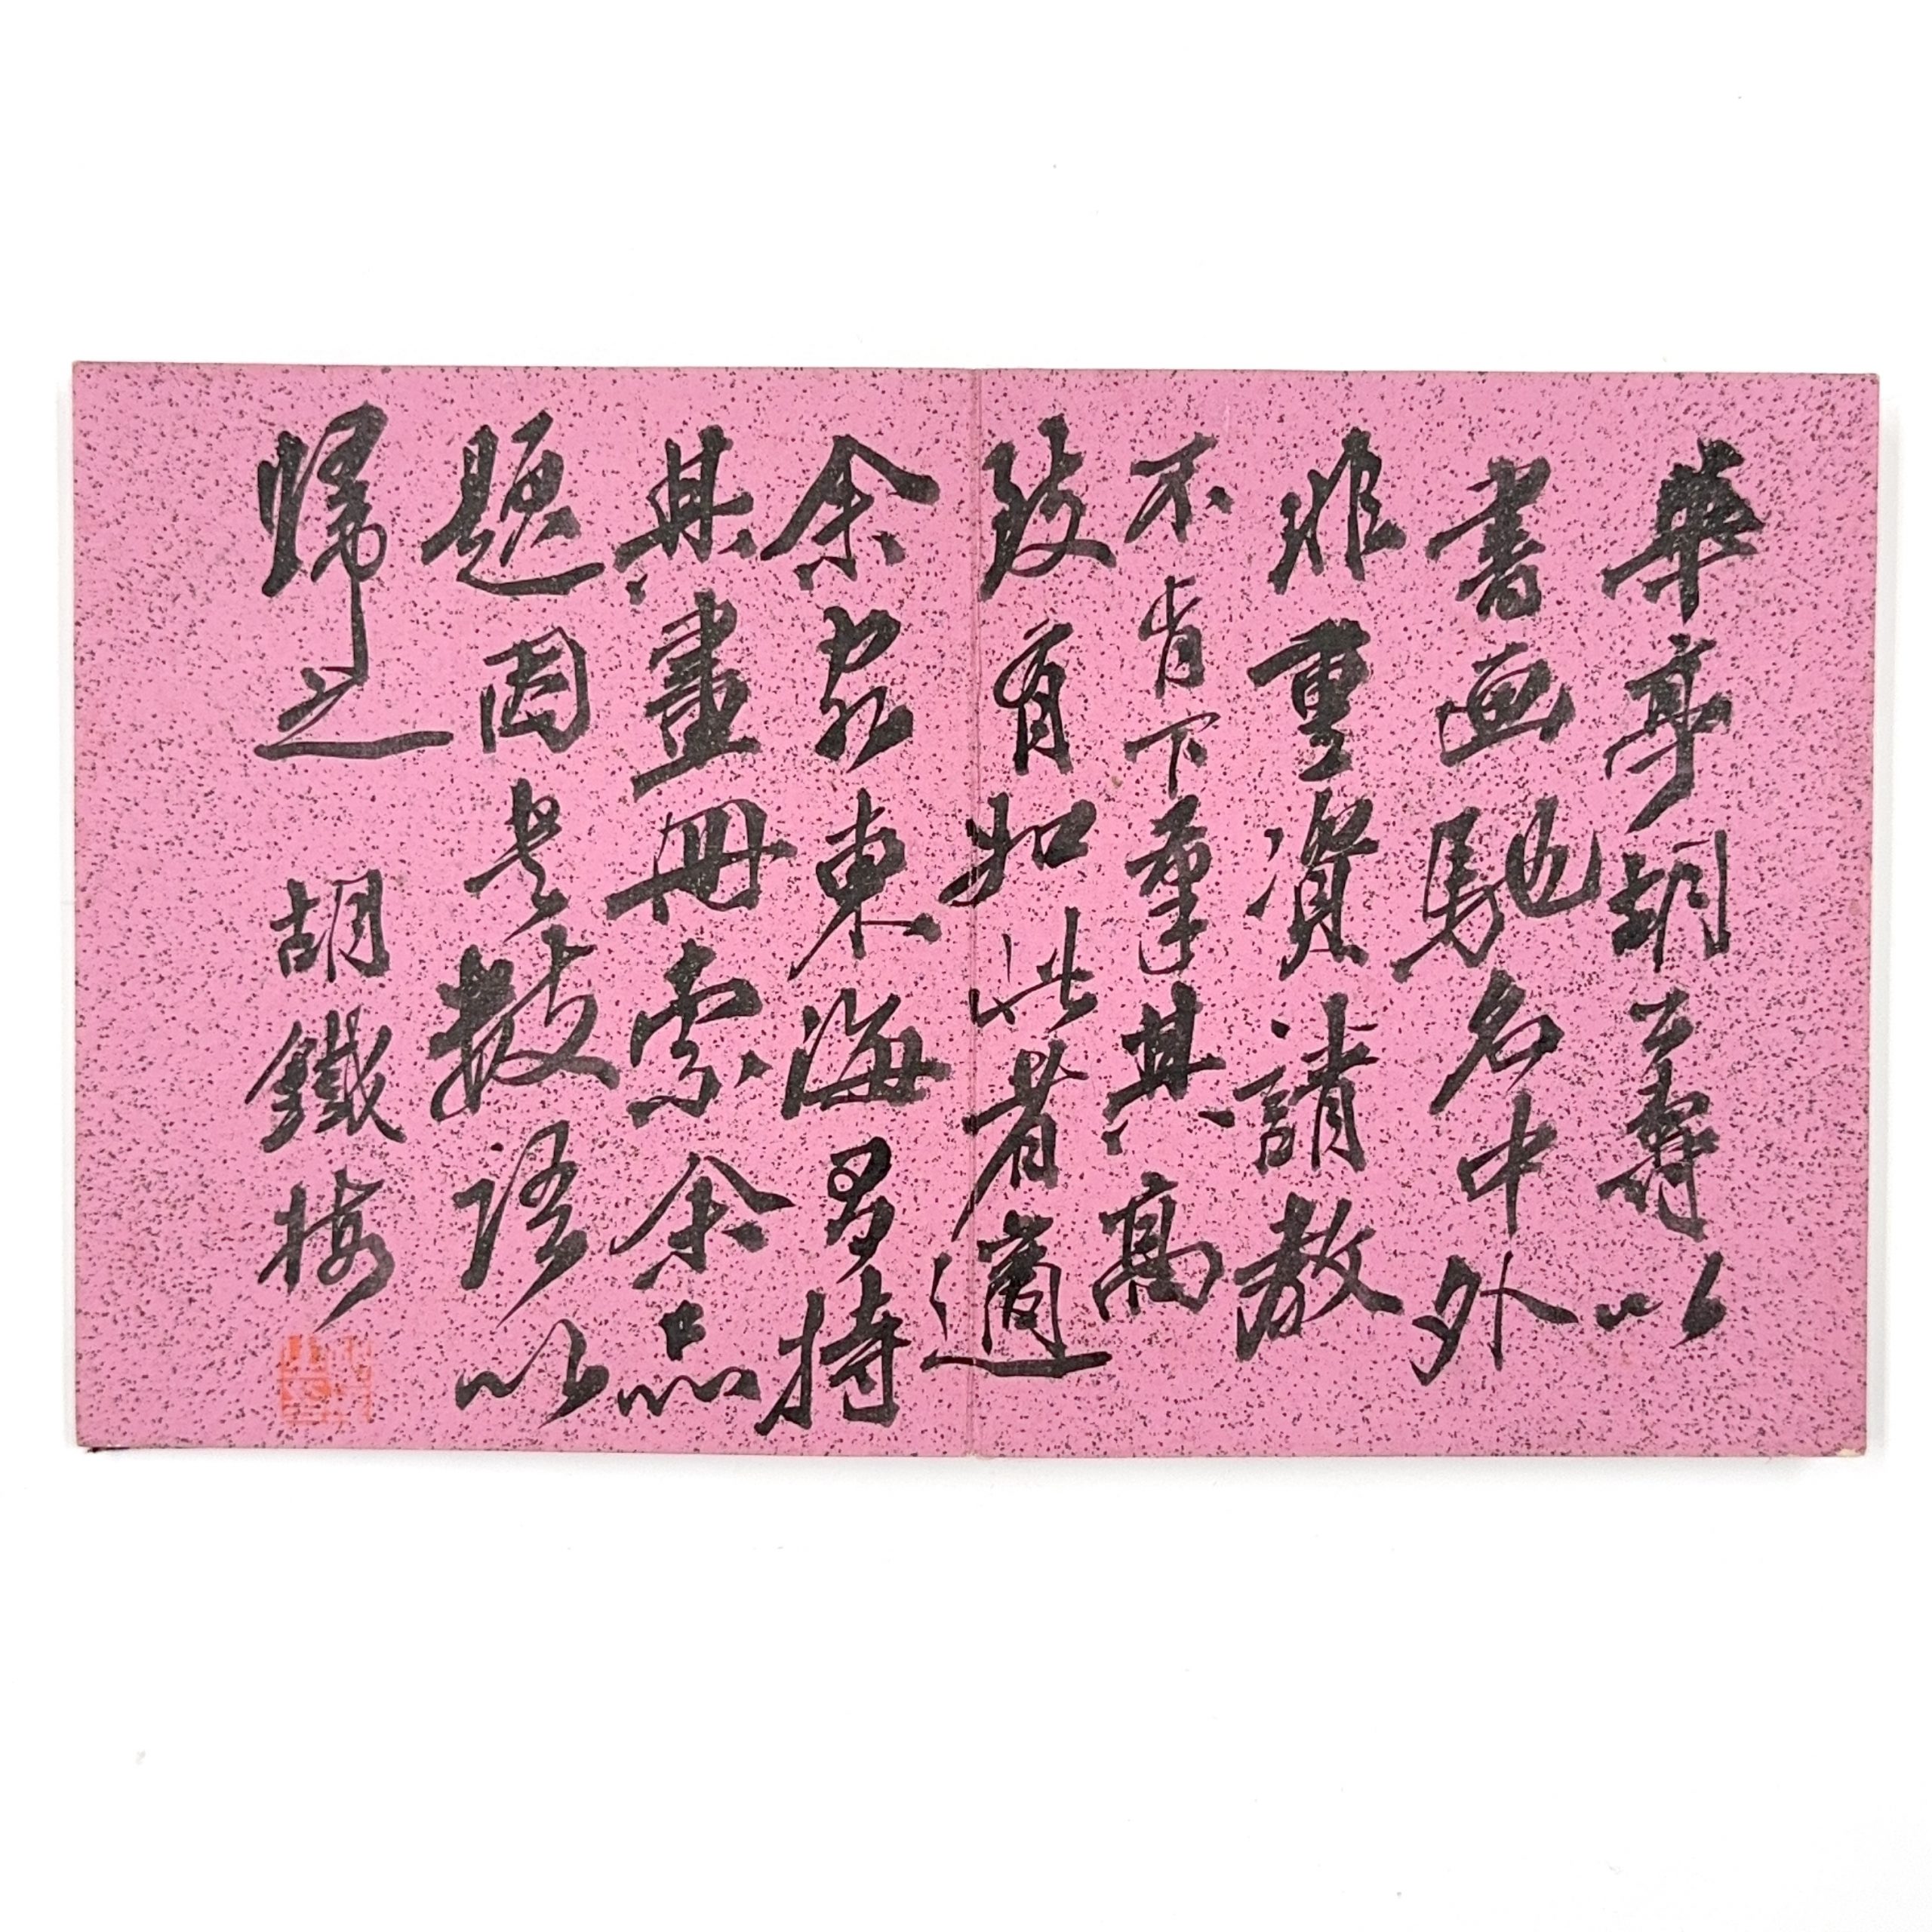 華亭胡公壽以
書画馳名中外
非重資請教
不肯下筆其高
致有如此者適
余家東海持
其畫冊索余品
題因書數語以
歸之 胡鐵梅